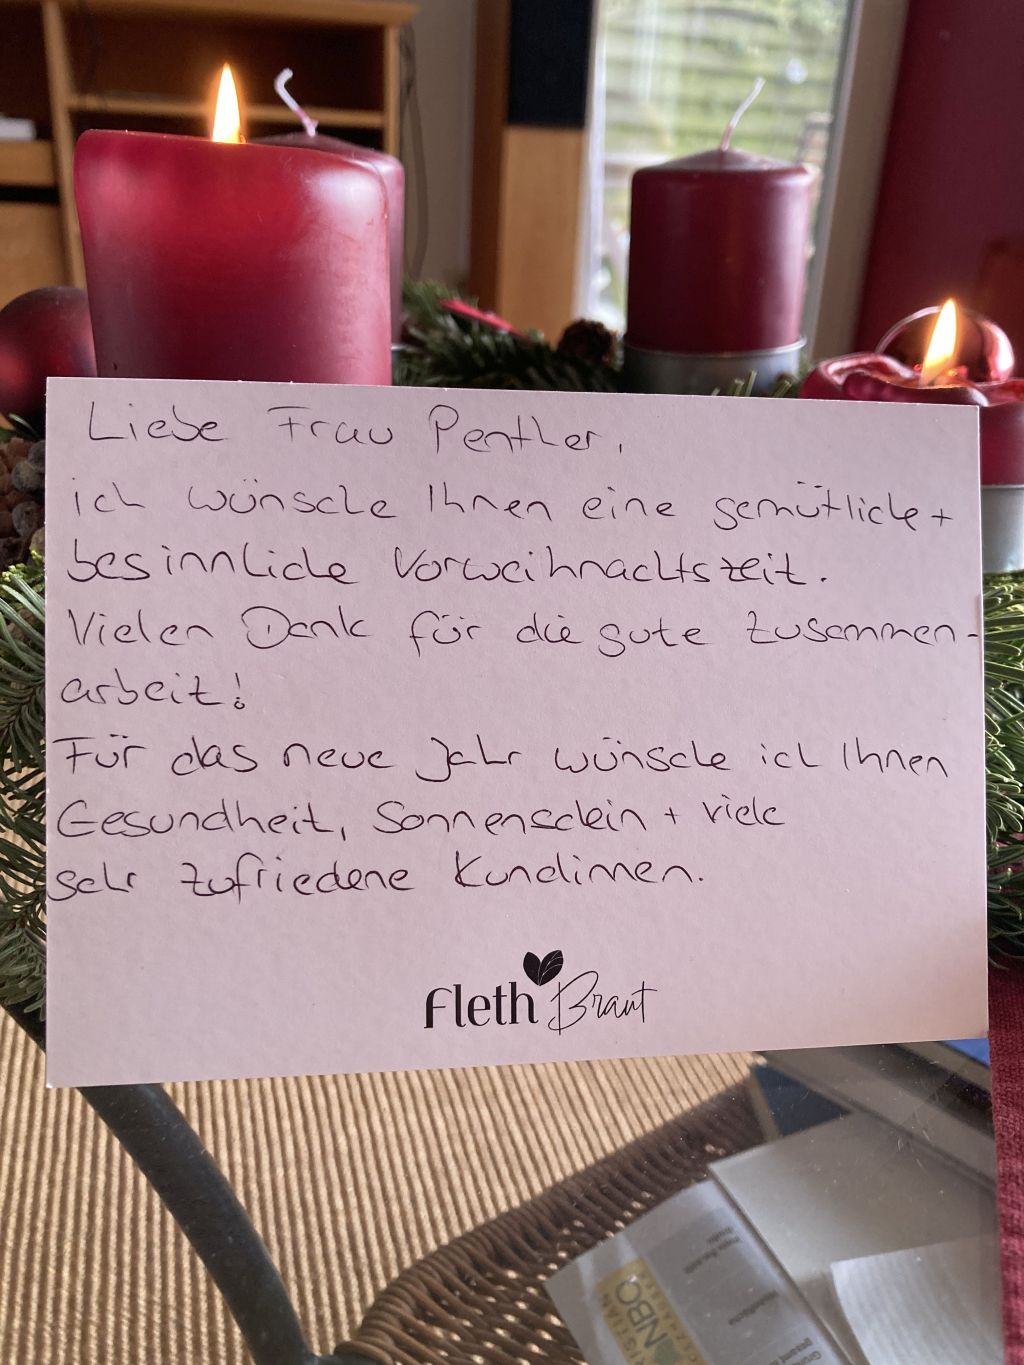 Liebe Frau Penther,
ich wünsche Ihnen eine gemütliche +
besinnliche Vorweihnachtszeit.
Vielen Dank für die gute Zusammen-
arbeit!
Für das neue Jahr wünsche ich Ihnen
Gesundheit, Sonnenschein + viele
sehr zufriedene Kundinnen.
Fleth Braut
NBO